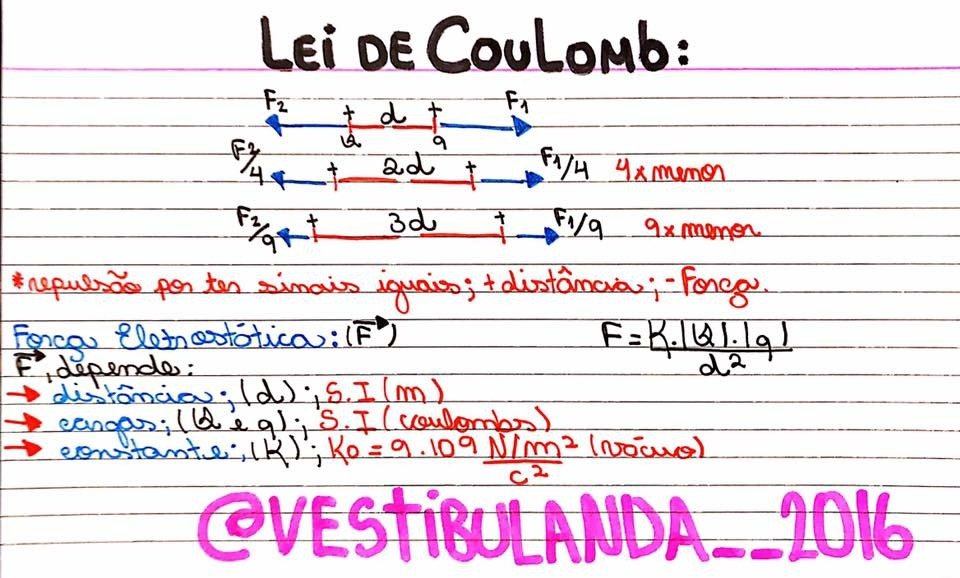 Lei de Coulomb:
F2 + d + F1
Q q
F2/4 + 2d + F1/4 4x menor
F2/9 + 3d + F1/9 9x menor
*repulsão por ter sinais iguais; + distância; - Força.
Força Eletrostática: (F) F = K.|Q|.|q|
d²
F, depende:
→ distância; (d); S.I (m)
→ cargas; (Q e q); S.I (coulombs)
→ constante; (K); Ko = 9.109 N/m² (vácuo)
c²
@VESTIBULANDA__2016